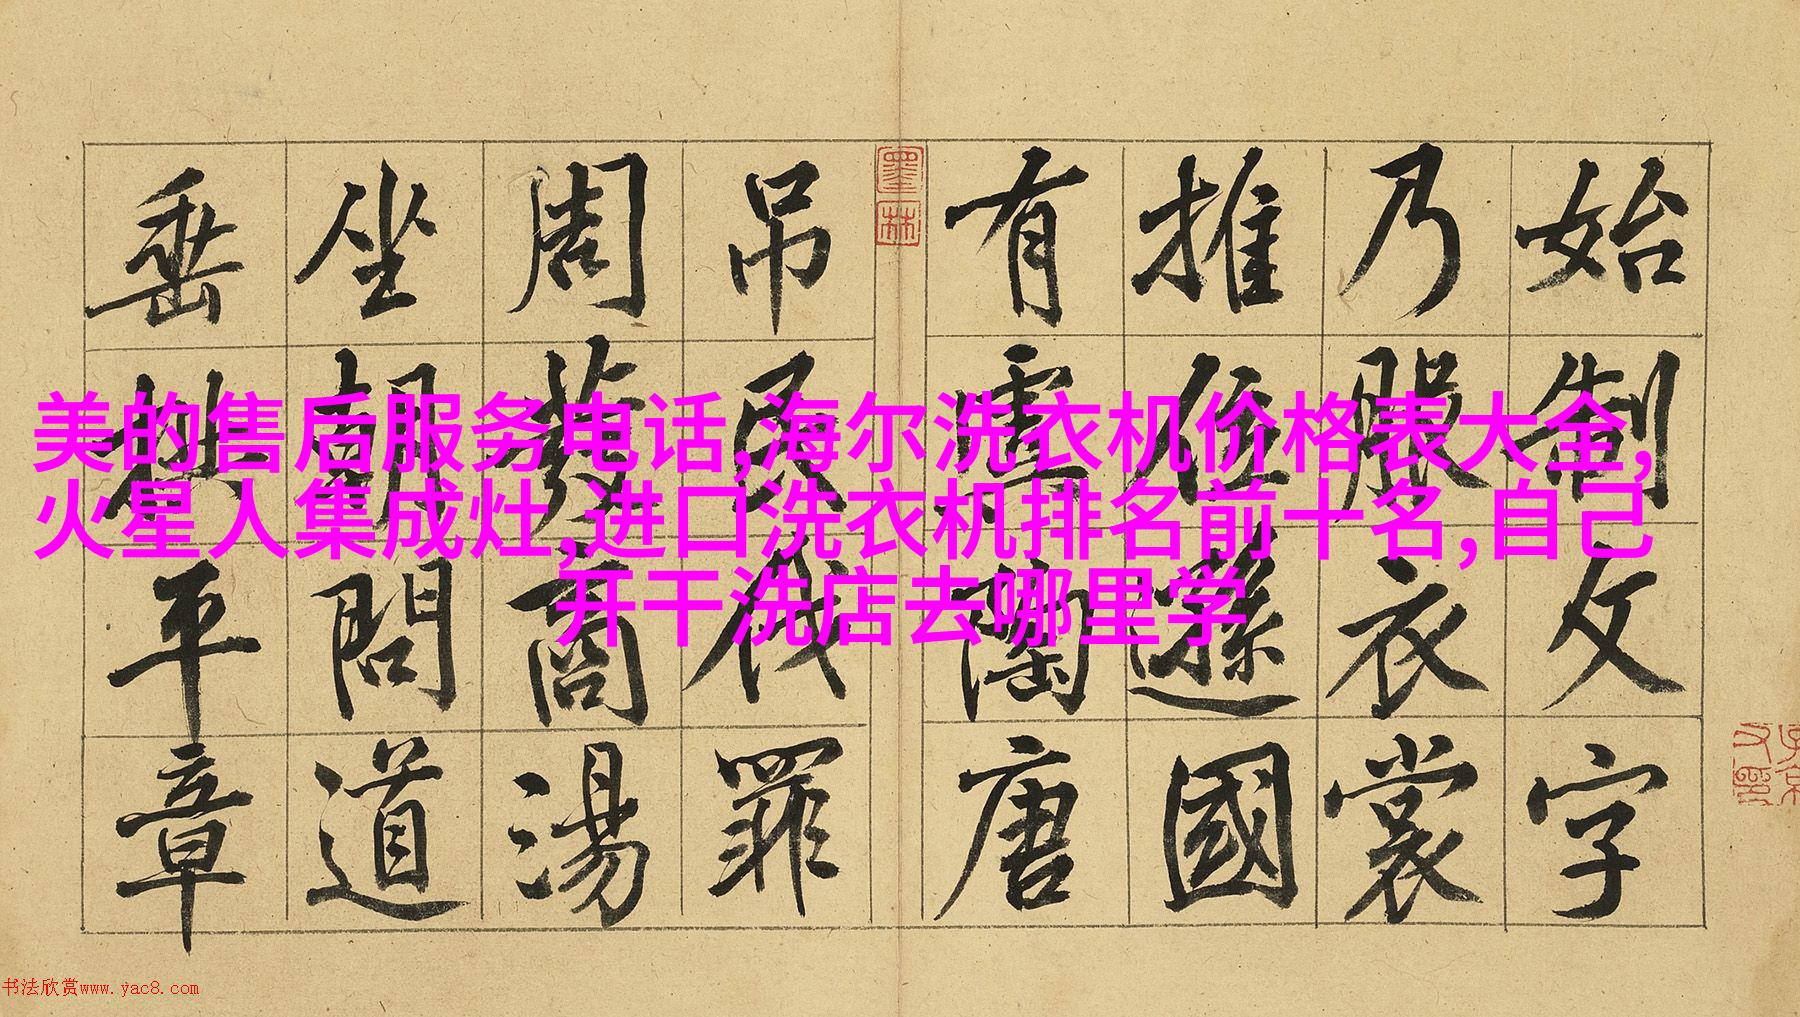 始制文字
乃服衣裳
推位遜國
有虞陶唐
吊民伐罪
周發商湯
坐朝問道
垂拱平章
墨林
美的售后服务电话,海尔洗衣机价格表大全,
火星人集成灶,进口洗衣机排名前十名,自己
开干洗店去哪里学
书法欣赏www.yac8.com